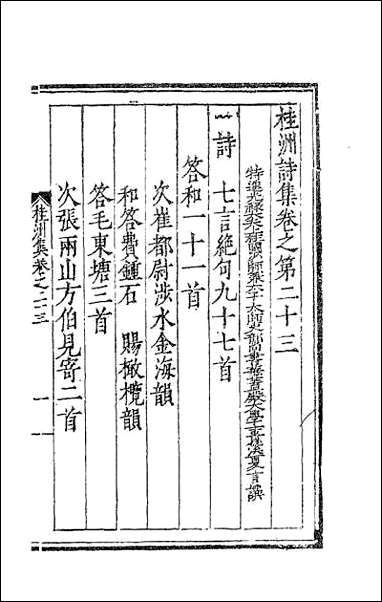 桂洲詩集卷之第二十三
特進光祿大夫上柱國少師兼太子太師吏部尚書華蓋殿大學士貴溪夏言撰
詩　七言絕句九十七首
答和一十一首
次崔都尉涉水金海韻
和答費鍾石　賜橄欖韻
答毛東塘三首
次張兩山方伯見寄二首
桂洲集卷之二十三　一